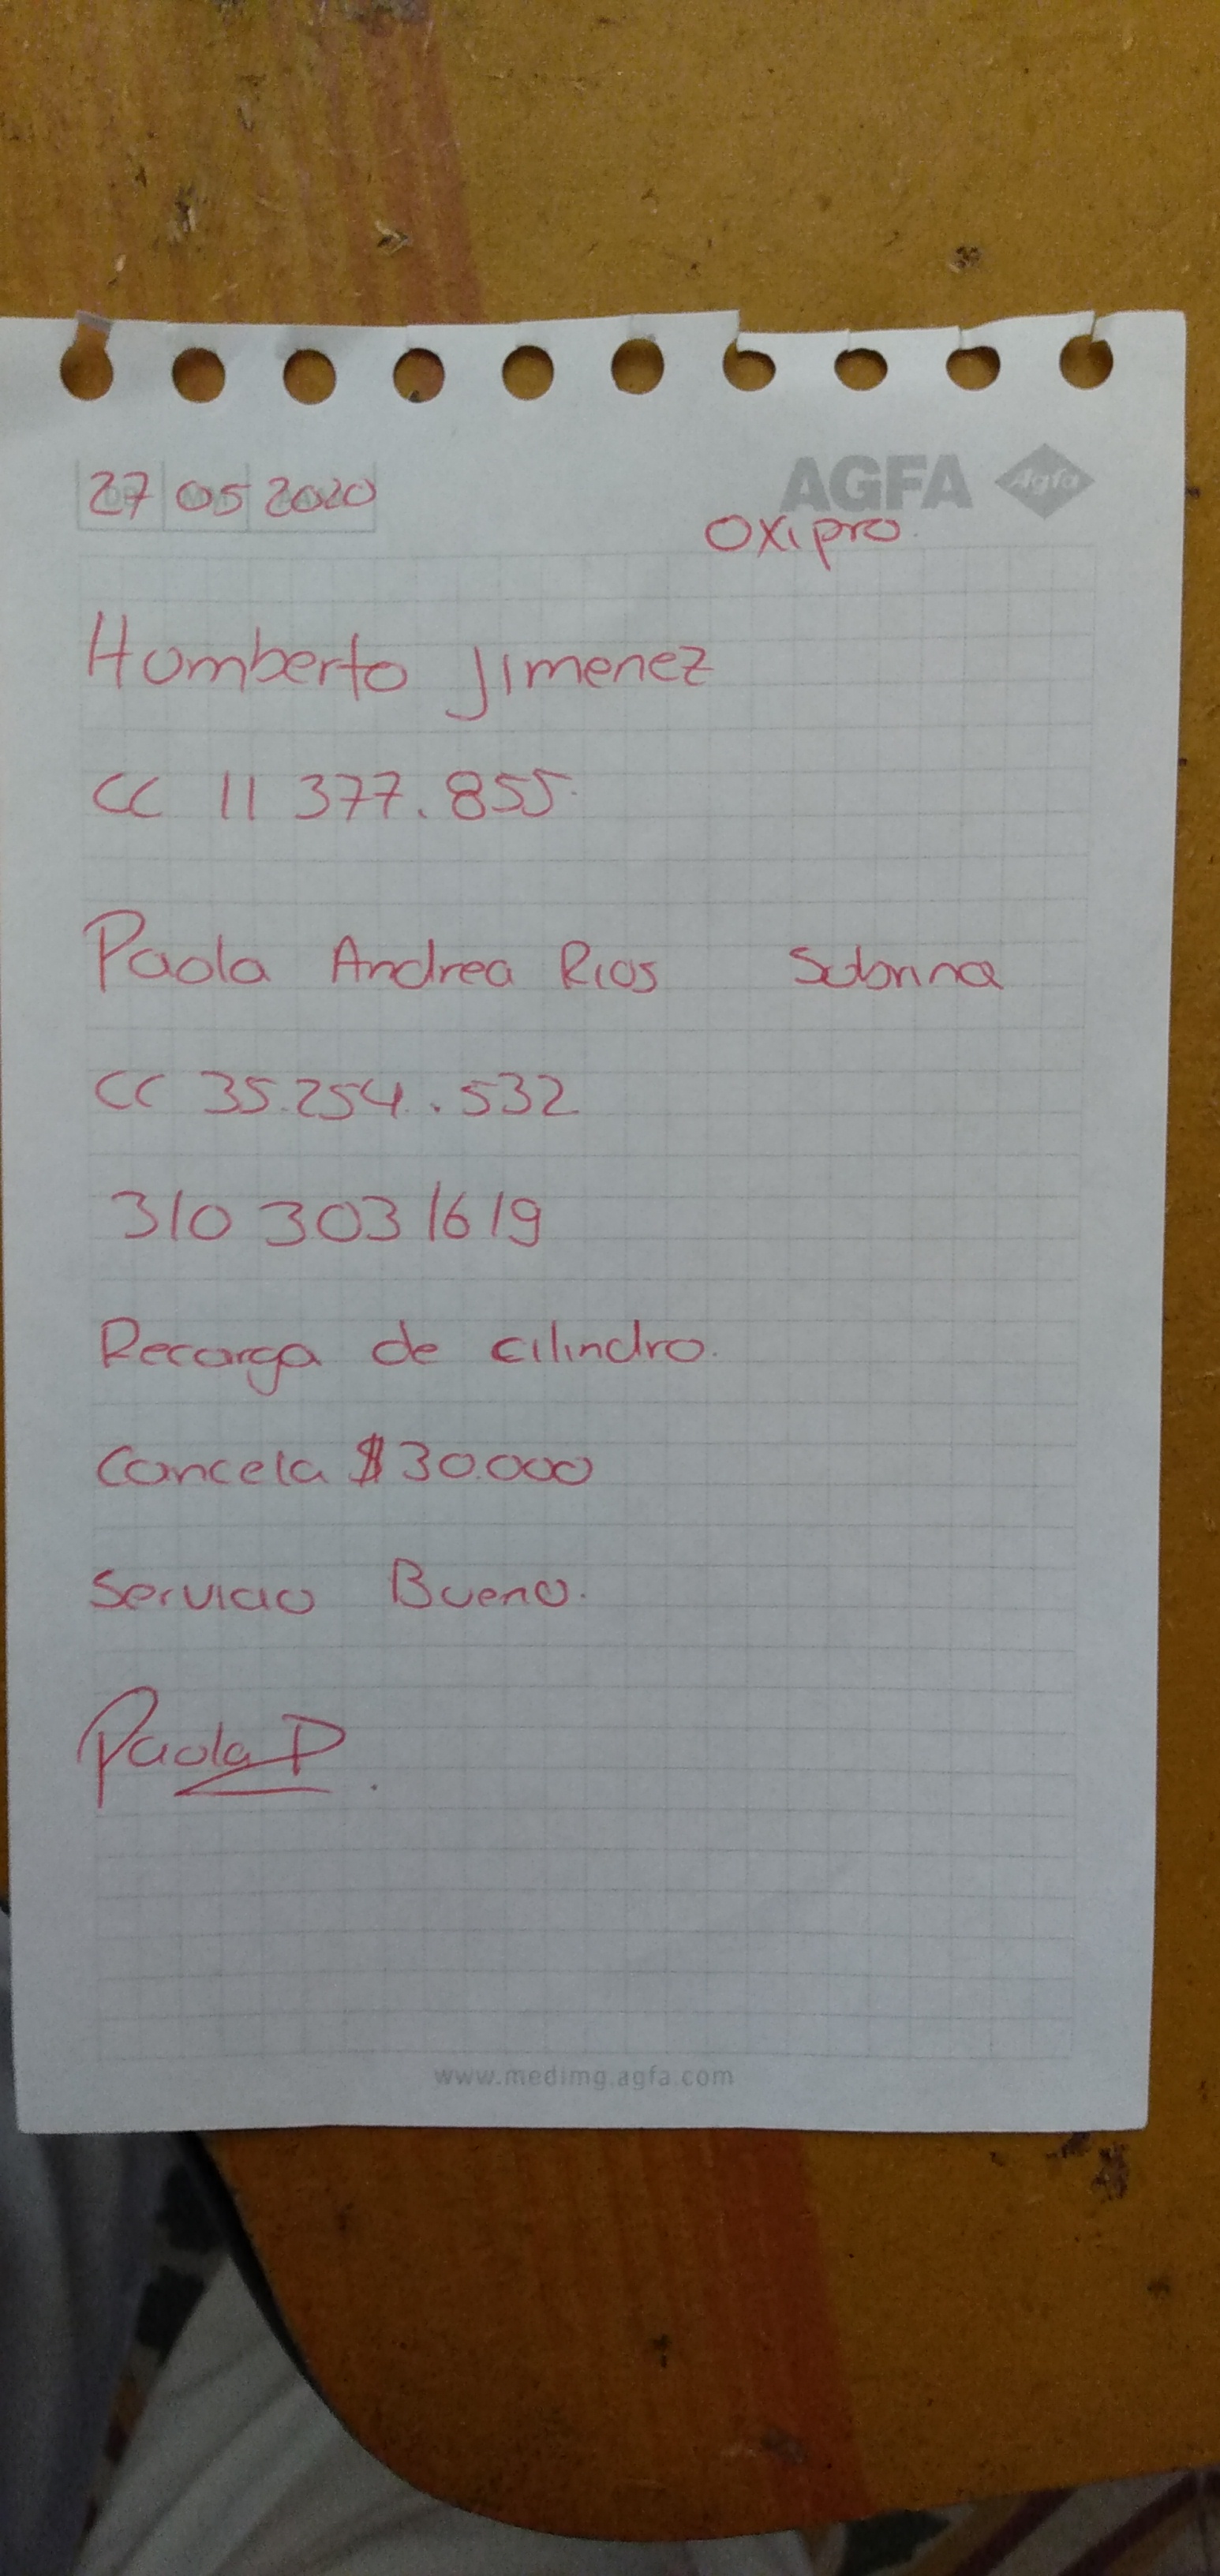 27 05 2020
AGFA Agfa
Oxipro.
Humberto Jimenez
CC 11 377.855.
Paola Andrea Rios Sobrina
CC 35.254.532
310 303 1619
Recarga de cilindro.
Cancela $30.000
Servicio Bueno.
Paola D.
www.medimg.agfa.com